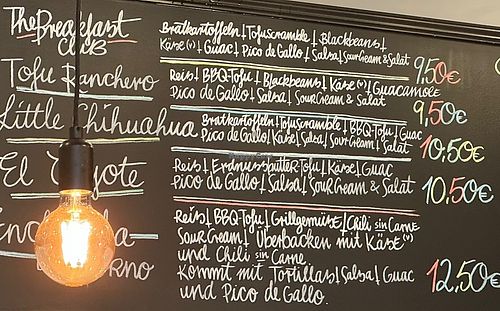 The Breakfast
Club
Bratkartoffeln | Tofuscramble | Blackbeans |
Käse (v) | Guac | Pico de Gallo | Salsa | SourCream & Salat
9,50€
Tofu Ranchero
Reis | BBQ-Tofu | Blackbeans | Käse (v) | Guacamole
Pico de Gallo | Salsa | SourCream & Salat
9,50€
Little Chihuahua
Bratkartoffeln | Tofuscramble | BBQ-Tofu | Guac
Pico de Gallo | Käse | Salsa | SourCream | Salat
10,50€
El
Reis | Erdnussbutter-Tofu | Käse | Guac
Pico de Gallo | Salsa | SourCream & Salat
10,50€
Reis | BBQ-Tofu | Grillgemüse | Chili sin Carne
SourCream | Überbacken mit Käse (v)
und Chili sin Carne
Kommt mit Tortillas | Salsa | Guac
und Pico de Gallo.
12,50€